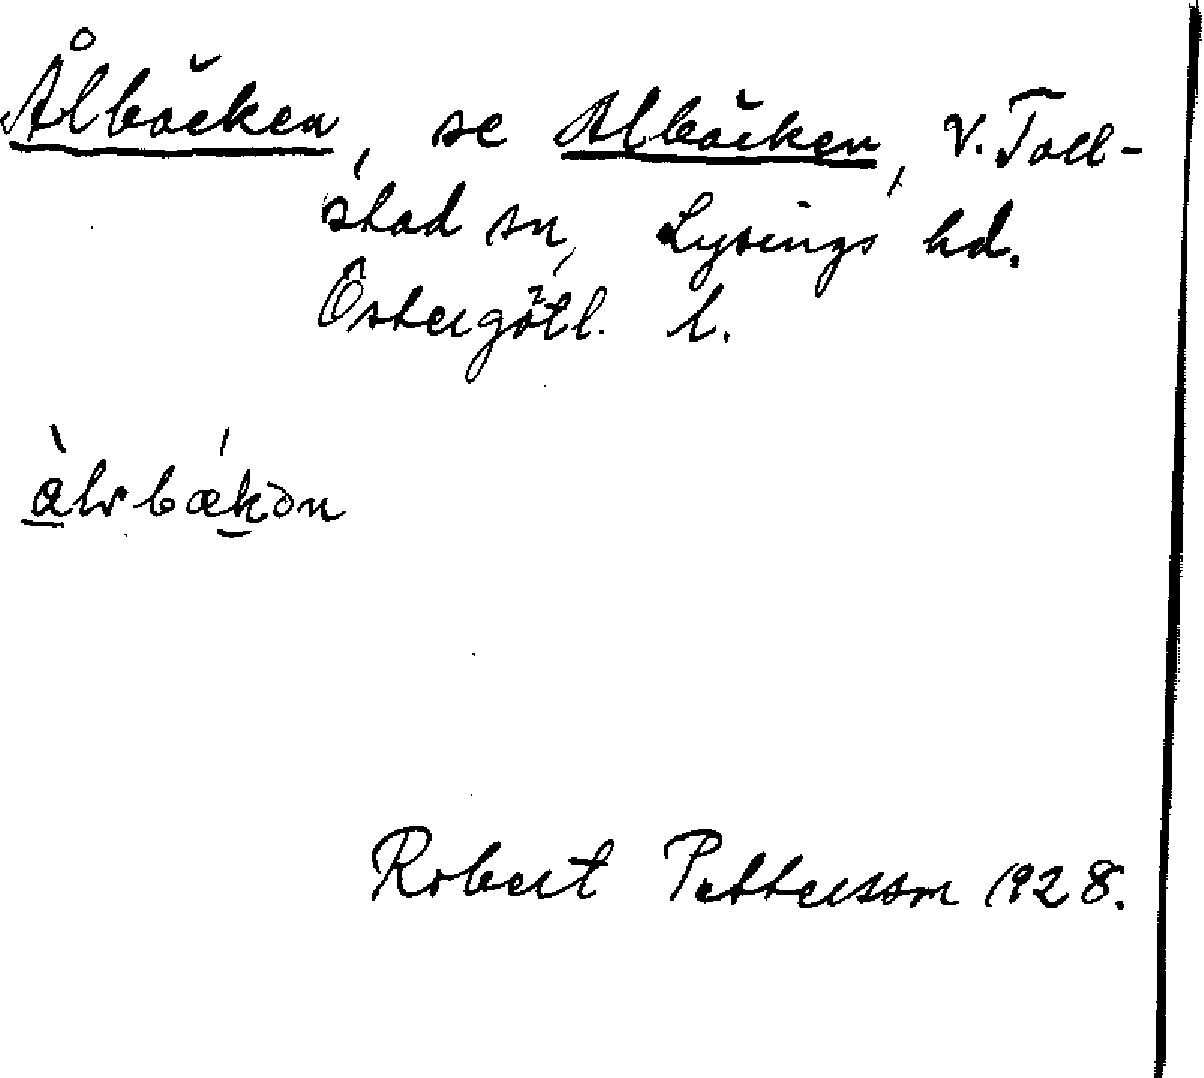 Ålbäcken, se Albäcken, V. Toll-
stad sn, Lysings hd.
Östergötl. l.
Robert Pettersson 1928.